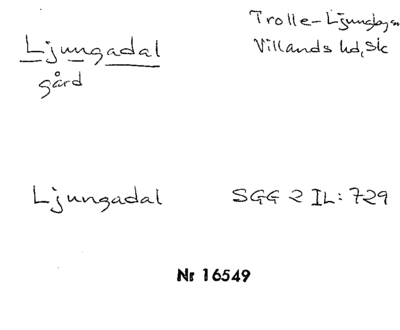 Ljungadal
gård
Trolle-Ljungby sn
Villands hd, Sk
Ljungadal
SGG 2 IL: 729
Nr 16549